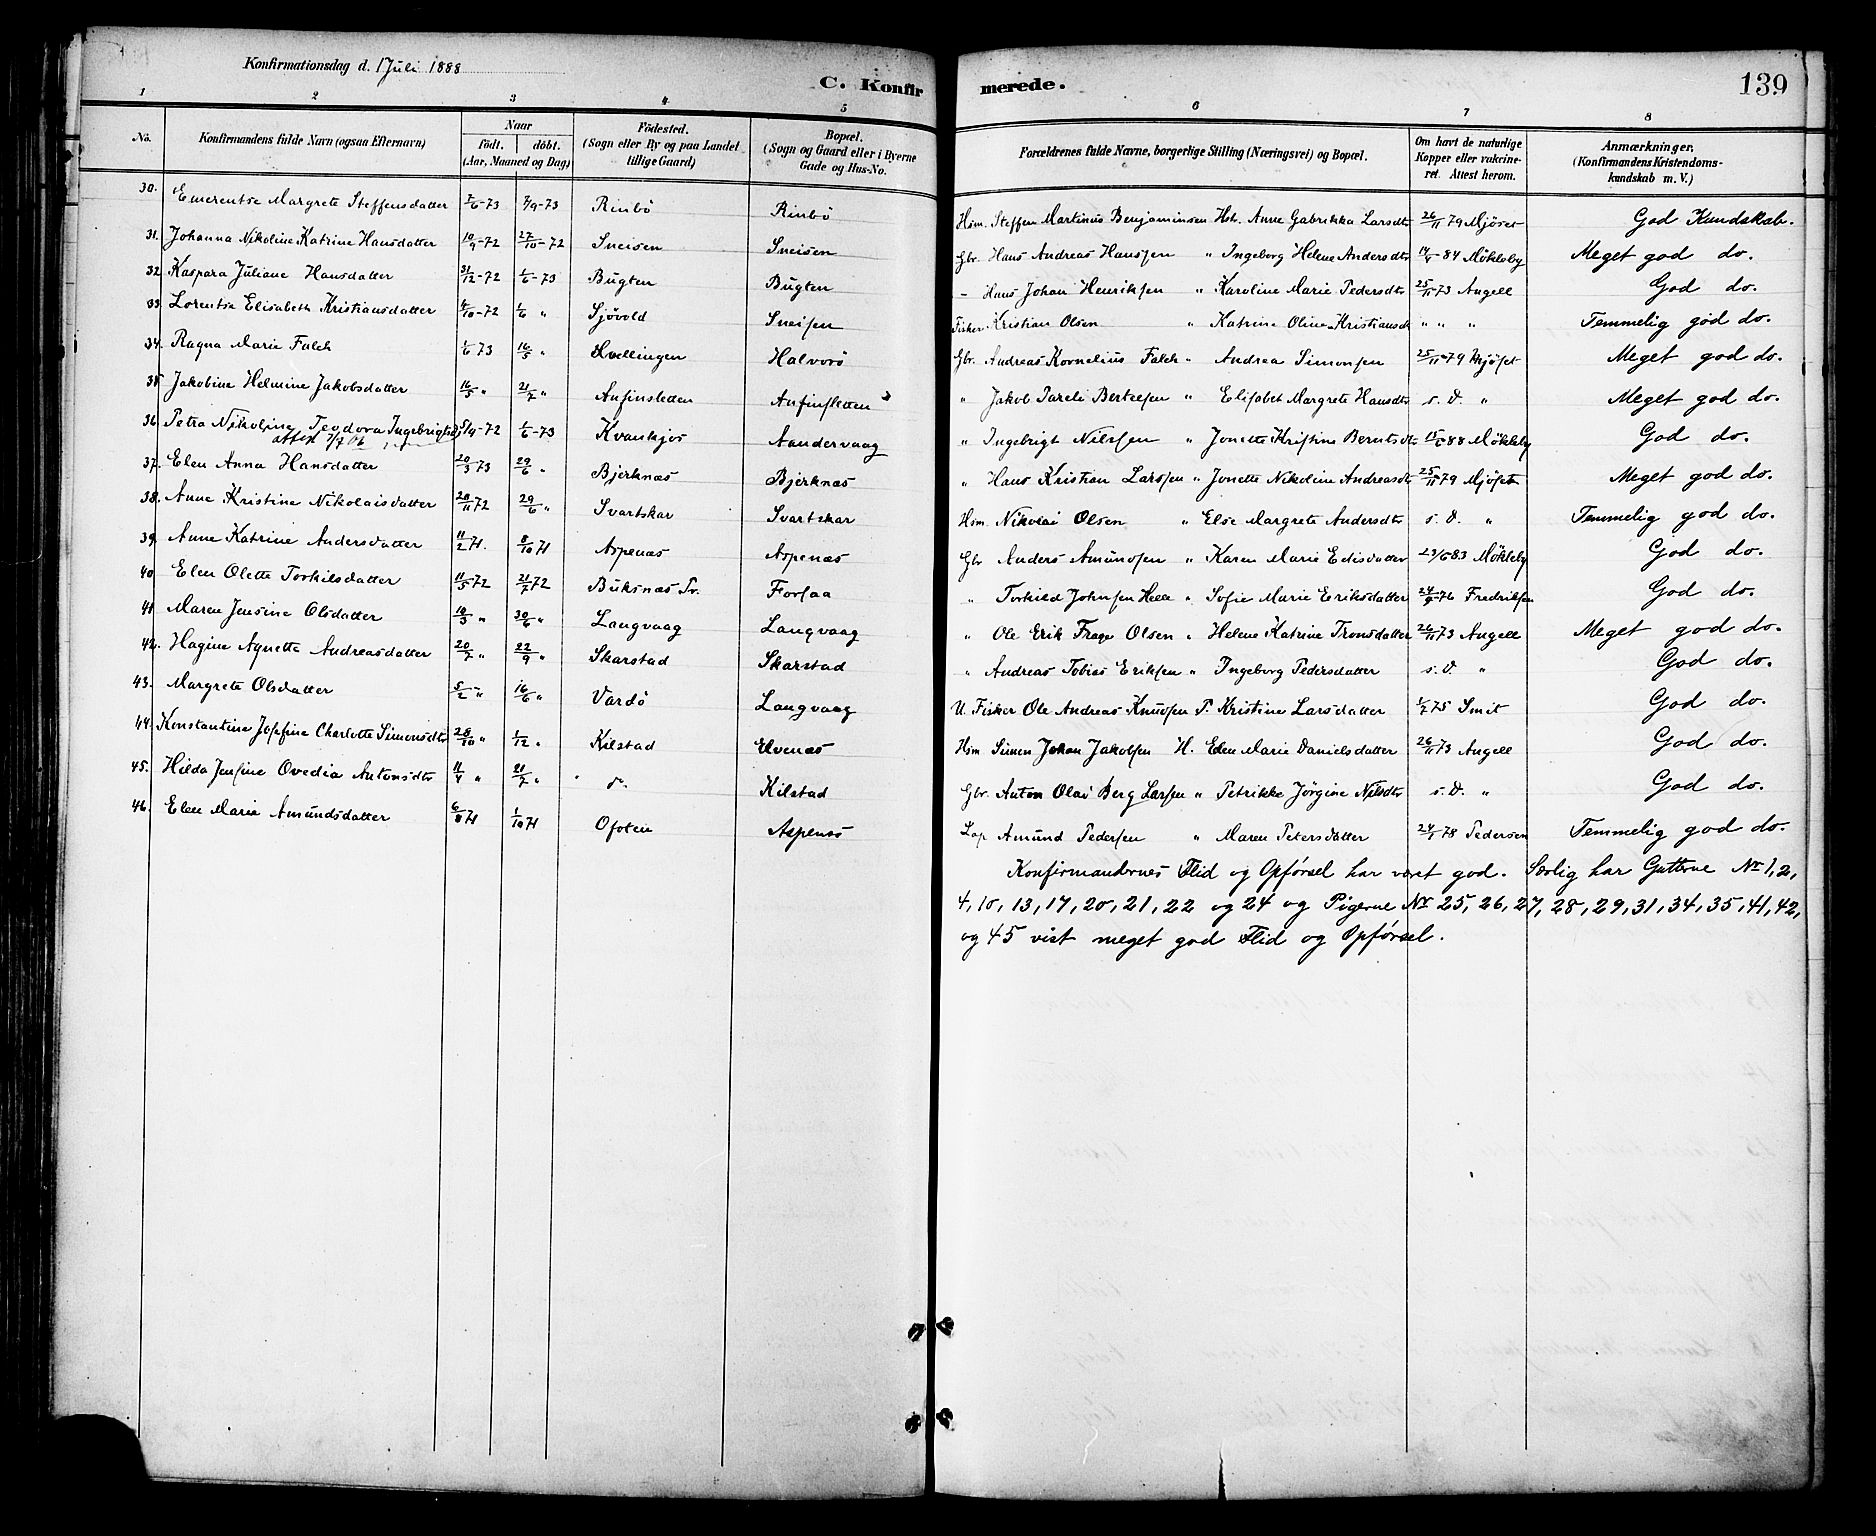 Konfirmationsdag d. 1 Juli 1888
C. Konfirmerede. 139
1 2 3 4 5 6 7 8
No. Konfirmandens fulde Navn (ogsaa Efternavn) Naar födt. döbt. (Aar, Maaned og Dag) Födested. (Sogn eller By og paa Landet tillige Gaard) Bopæl. (Sogn og Gaard eller i Byerne Gade og Hus-No. Forældrenes fulde Navne, borgerlige Stilling (Næringsvei) og Bopæl. Om havt de naturlige Kopper eller vakcineret. Attest herom. Anmærkninger. (Konfirmandens Kristendomskundskab m. V.)
30. Emerentse Margrete Steffensdatter 7/9-73 Rinbö Rinbö Hsm. Steffen Martinus Benjaminsen Hst. Anne Gabrikka Larsdtr 26/11 79 Mjöset God Kundskab.
31. Johanna Nikoline Katrine Hansdatter 10/9-72 27/10-72 Sneisen Sneisen Gbr. Hans Andreas Hanssen " Ingeborg Helene Andersdtr 84 Mökleby Meget god do.
32 Kaspara Juliane Hansdatter 31/12-72 1/6-73 Bugten Bugten - Hans Johan Henriksen " Karoline Marie Pedersdtr 25/11 73 Angell God do.
33 Lorentse Elisabeth Kristiansdatter 4/10-72 1/6 " Sjövold Sneisen Fisker Kristian Olsen " Katrine Oline Kristiansdt " " " Temmelig god do.
34. Ragna Marie Falch 1/6 73 16/5 " Kvellingen Halvorö Gbr. Andreas Kornelius Falch " Andrea Simonsen 25/11 79 Mjöset Meget god do.
35 Jakobine Helmine Jakobsdatter 16/5 " 21/7 " Anfinsletten Anfinsletten " Jakob Pareli Bertelsen " Elisabet Margrete Hansdtr s. D. " Meget god do.
36 Petra Nikoline Teodora Ingebrigtsd. 72 1/6-73 Kvankjos Aandervaag " Ingebrigt Nilssen " Jonette Kristine Berntsdtr 88 Mökleby God do.
attest 7/7 06
37. Elen Anna Hansdatter 20/3 73 29/6 " Bjerknæs Bjerknæs " Hans Kristian Larssen " Jonette Nikoline Andreasdt 25/11 79 Mjöset Meget god do.
38. Anne Kristine Nikolaisdatter 28/11 72 29/6 " Svartskar Svartskar Hsm. Nikolai Olsen " Else Margrete Andersdtr s. D. " Temmelig god do.
39. Anne Katrine Andersdatter 11/2 71. 8/10 71 Aspenæs Aspenæs Gbr Anders Amundsen " Karen Marie Edisdatter 23/6 83 Mökleby God do.
40 Elen Olette Torkilsdatter 11/5 72 21/7 72 Buksnæs Pr. Forsaa " Torkild Johnsen Helle " Sofie Marie Eriksdatter 24/9 76 Fredriksen God do.
41 Maren Jensine Olsdatter 10/3 " 30/6 " Langvaag Langvaag " Ole Erik Frage Olsen " Helene Katrine Tronsdatter 26/11 73 Angell Meget god do.
42. Hagine Agnetta Andreasdatter 20/7 " 22/9 " Skarstad Skarstad " Andreas Tobias Eriksen " Ingeborg Pedersdatter s. D. " God do.
43. Margrete Olsdatter 5/2 " 16/6 " Vardö Langvaag U. Fisker Ole Andreas Knudsen P. Kristine Larsdatter 1/7 75 Smit God do.
44. Konstantine Josefine Charlotte Simonsdtr 28/10 " 1/12 " Kilstad Elvenæs Hsm Simon Johan Jakobsen H. Elen Marie Danielsdatter 26/11 73 Angell God do.
45. Hilda Jensine Ovedia Antonsdtr 11/4 " 21/7 " " do. Kilstad Gbr. Anton Olai Berg Larsen " Petrikke Jörgine Nilsdtr s. D. " God do.
46. Elen Marie Amundsdatter 6/8 71 1/10 71 Ofoten Aspenes Lap Amund Pedersen " Maren Petersdatter 78 Pedersen Temmelig god do.
Konfirmandernes Flid og Opförsel har været god. Særlig har Gutterne No 1, 2,
4, 10, 13, 17, 20, 21, 22 og 24 og Pigerne No 25, 26, 27, 28, 29, 31, 34, 35, 41, 42,
og 45 vist meget god Flid og Opförsel.